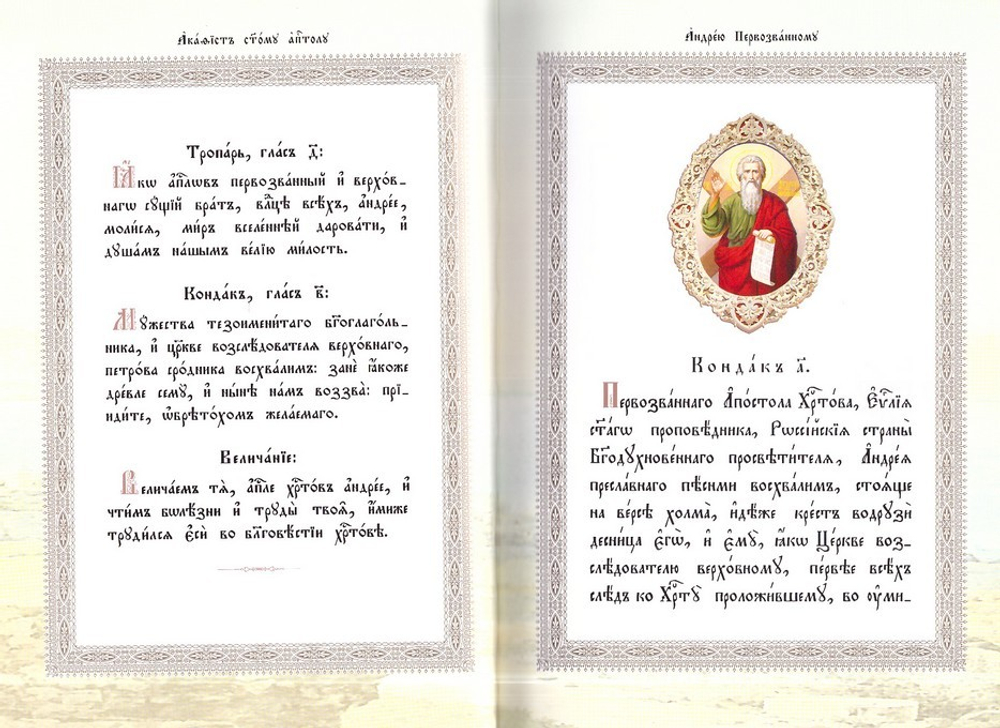 Ака́ѳїстъ ст҃о́му а҆п҇толу
Тропа́рь, гла́съ д҃:
Ꙗ҆́кѡ а҆п҇лѡвъ первозва́нный и҆ верхо́в-
нагѡ су́щїй бра́тъ, влⷣцѣ всѣ́хъ, а҆ндре́е,
моли́сѧ, ми́ръ вселе́ннѣй дарова́ти, и҆
душа́мъ на́шымъ ве́лїю ми́лость.
Конда́къ, гла́съ в҃:
Му́жества тезоимени́таго бг҃оглаго́ль-
ника, и҆ цр҃кве возслѣ́дователѧ верхо́внаго,
петро́ва сро́дника восхва́лимъ: занѐ ꙗ҆́коже
дре́вле сему̀, и҆ ны́нѣ на́мъ воззва̀: прї-
иди́те, ѡ҆брѣто́хомъ жела́емаго.
Велича́нїе:
Велича́емъ тѧ̀, а҆п҇ле хрⷭ҇то́въ андре́е, и҆
чти́мъ бѡлѣ́зни и҆ труды̀ твоѧ̑, и҆́миже
труди́лсѧ є҆сѝ во бл҃говѣ́стїи хрⷭ҇то́вѣ.
Андре́ю Первозва́нному
Конда́къ а҃.
Первозва́ннаго А҆по́стола Хрⷭ҇то́ва, Є҆ѵⷢ҇лїѧ
ст҃а́гѡ проповѣ́дника, Рѡссі́йскїѧ страны̀
Бг҃одухнове́ннаго просвѣти́телѧ, А҆ндре́ѧ
пресла́внаго пѣ́сньми восхва́лимъ, стоѧ́ще
на ве́рсѣ холма̀, и҆дѣ́же кре́стъ водрузѝ
десни́ца є҆гѡ̀, и҆ є҆мꙋ̀, ꙗ҆́кѡ Це́ркве воз-
слѣ́дователю верхо́вному, пе́рвѣе всѣ́хъ
слѣ́дъ ко Хрⷭ҇ту̀ проложи́вшему, во ᲂу҆ми-